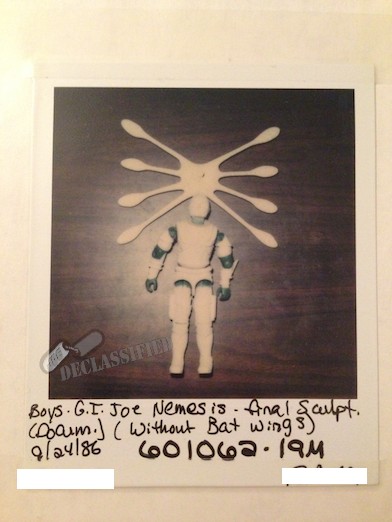 DECLASSIFIED
Boys. G.I. Joe Nemesis - Final Sculpt.
(Docum.) (Without Bat Wings)
9/24/86 601062.19M